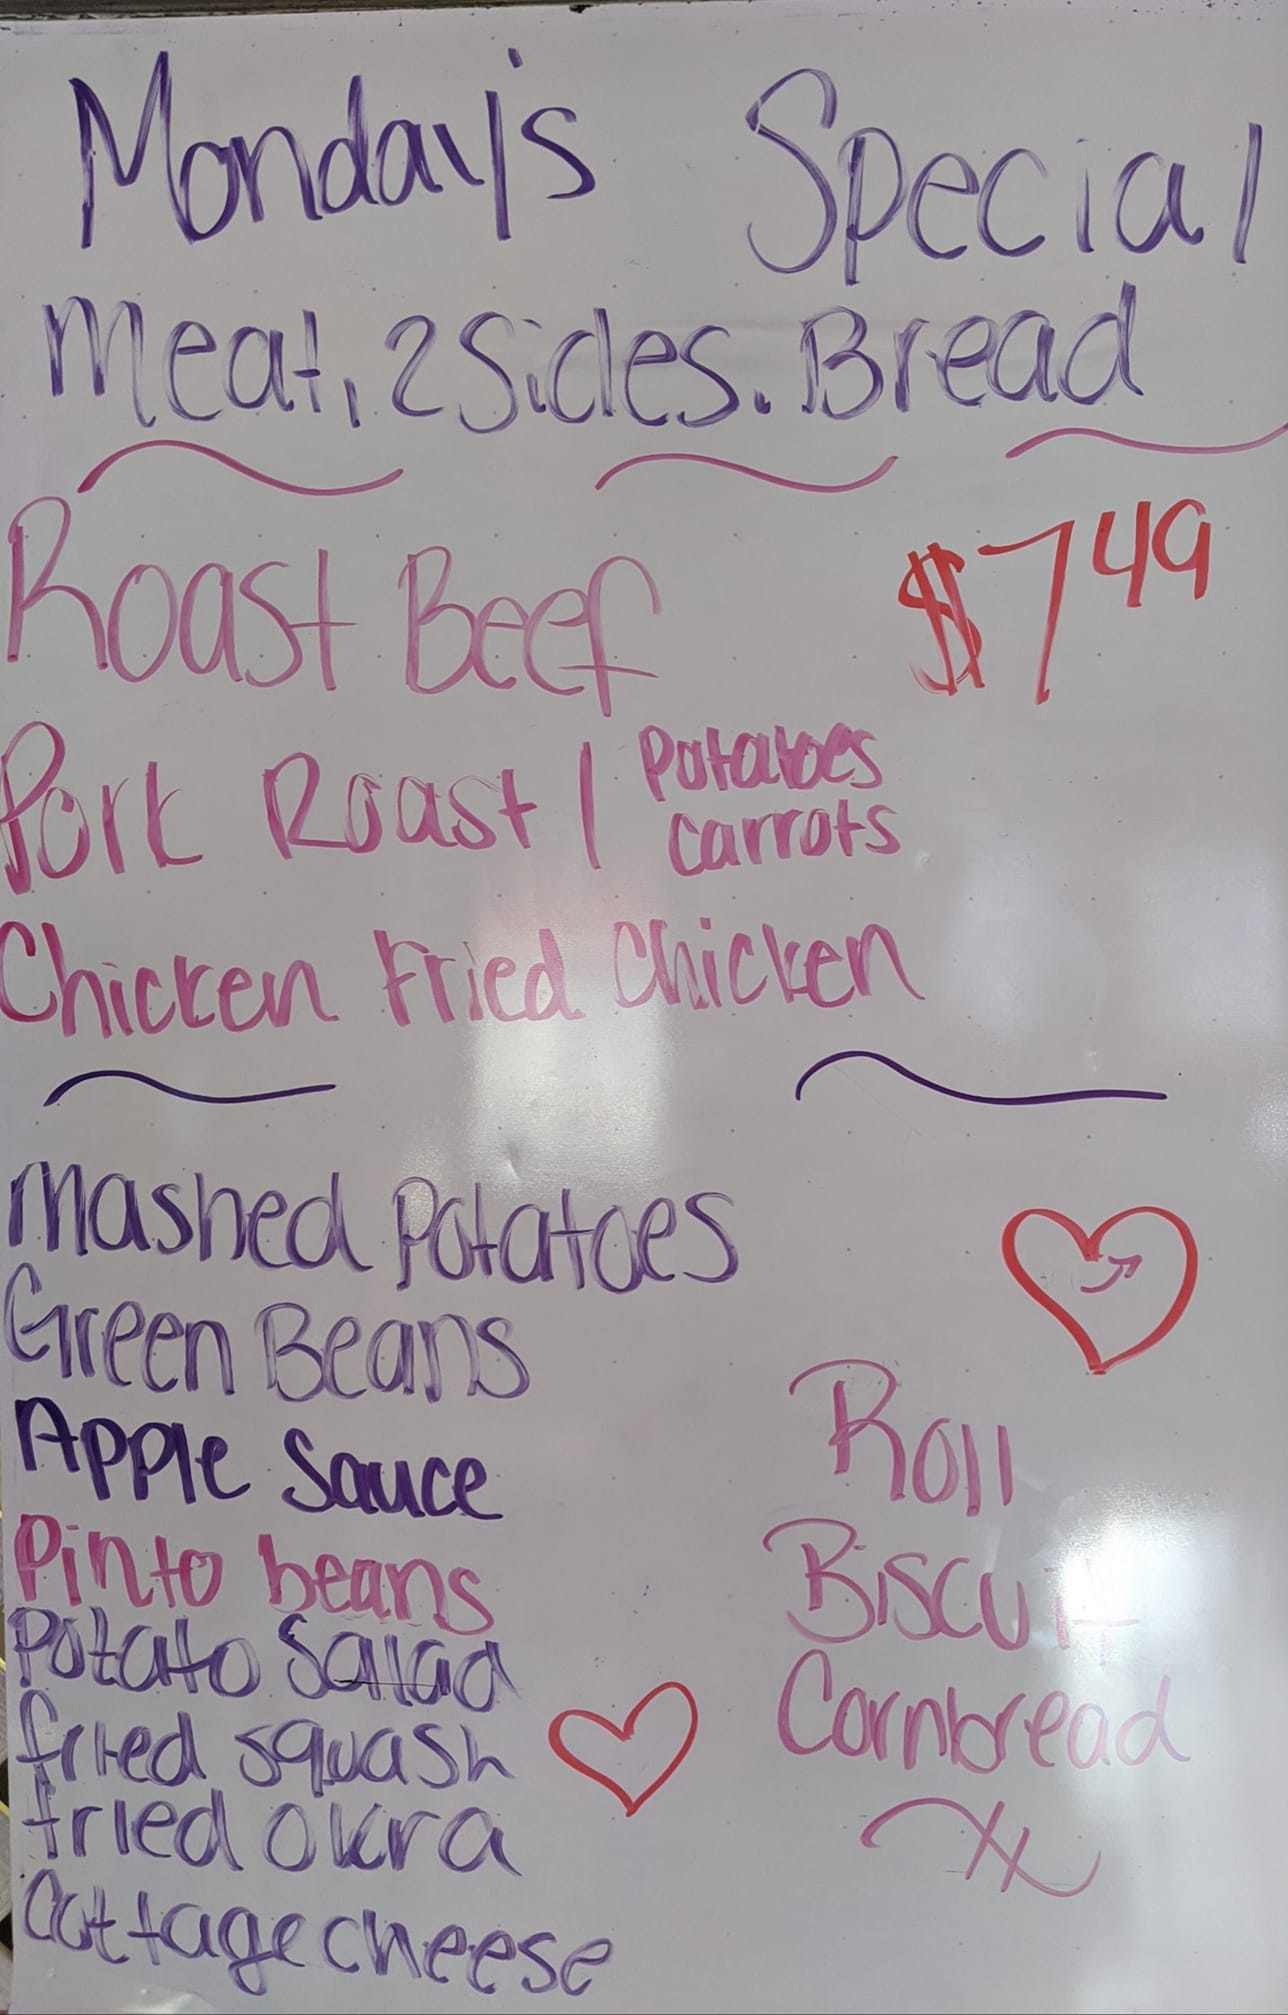 Monday's Special
Meat, 2 Sides. Bread
Roast Beef $7 49
Pork Roast / Potatoes
carrots
Chicken Fried Chicken
Mashed Potatoes
Green Beans
Apple Sauce
Pinto beans
Potato Salad
fried squash
fried okra
Cottage cheese
Roll
Biscuit
Cornbread